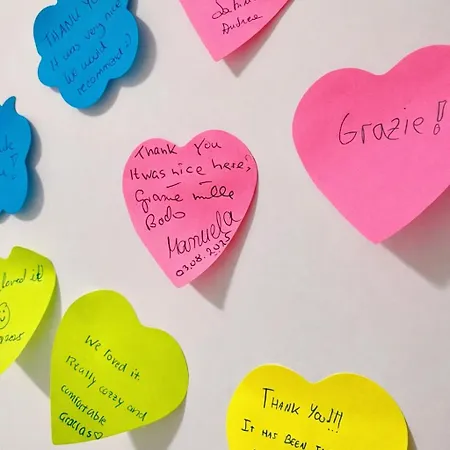 THANK YOU
It was very nice
We would
recommend :)
Andree
Grazie!
Thank You
It was nice here;
Grazie mille
Bodo
Manuela
03.08.2025
loved it!
2025
We loved it.
Really cozzy and
comfortable
Gracias♡
THANK YOU!!!
IT HAS BEEN